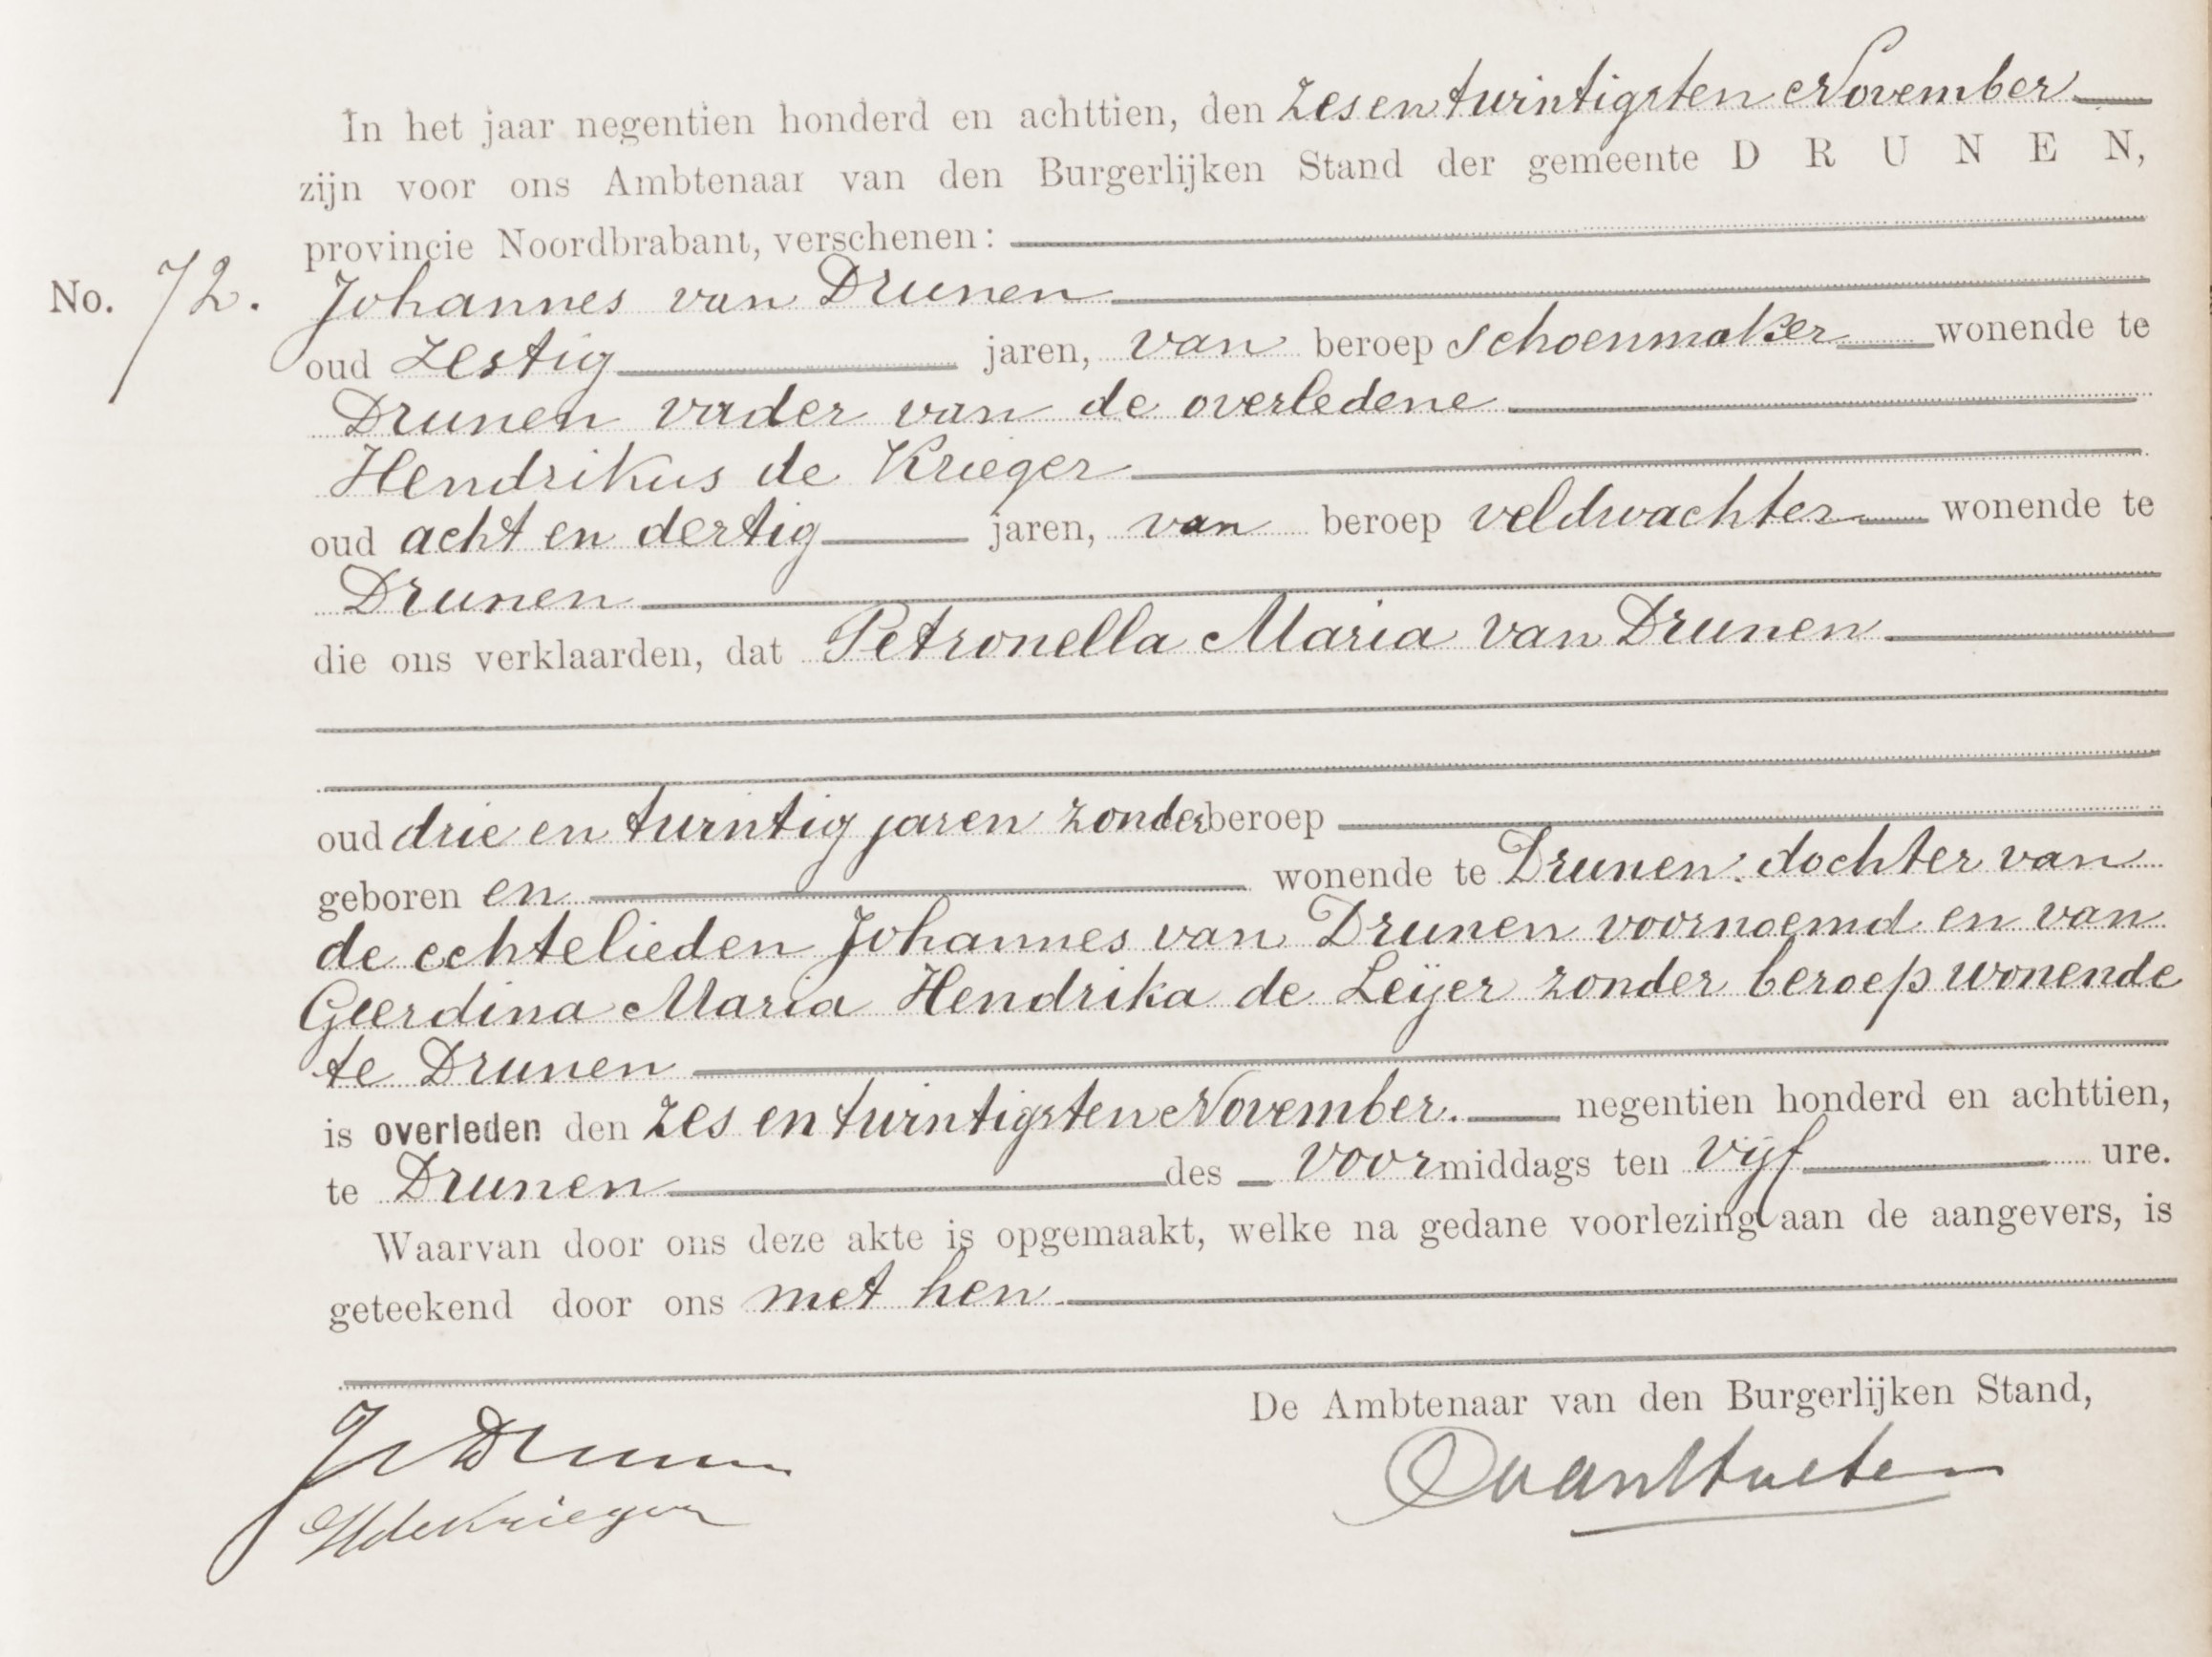 In het jaar negentien honderd en achttien, den zes en twintigsten November
zijn voor ons Ambtenaar van den Burgerlijken Stand der gemeente DRUNEN,
provincie Noordbrabant, verschenen:
No. 72. Johannes van Drunen
oud zestig jaren, van beroep schoenmaker wonende te
Drunen vader van de overledene
Hendrikus de Krieger
oud acht en dertig jaren, van beroep veldwachter wonende te
Drunen
die ons verklaarden, dat Petronella Maria van Drunen
oud drie en twintig jaren zonder beroep
geboren en wonende te Drunen: dochter van
de echtelieden Johannes van Drunen voornoemd en van
Geerdina Maria Hendrika de Leijer zonder beroep wonende
te Drunen
is overleden den zes en twintigsten November. negentien honderd en achttien,
te Drunen des voormiddags ten vijf ure.
Waarvan door ons deze akte is opgemaakt, welke na gedane voorlezing aan de aangevers, is
geteekend door ons met hen
De Ambtenaar van den Burgerlijken Stand,
J v Drunen
H de Krieger